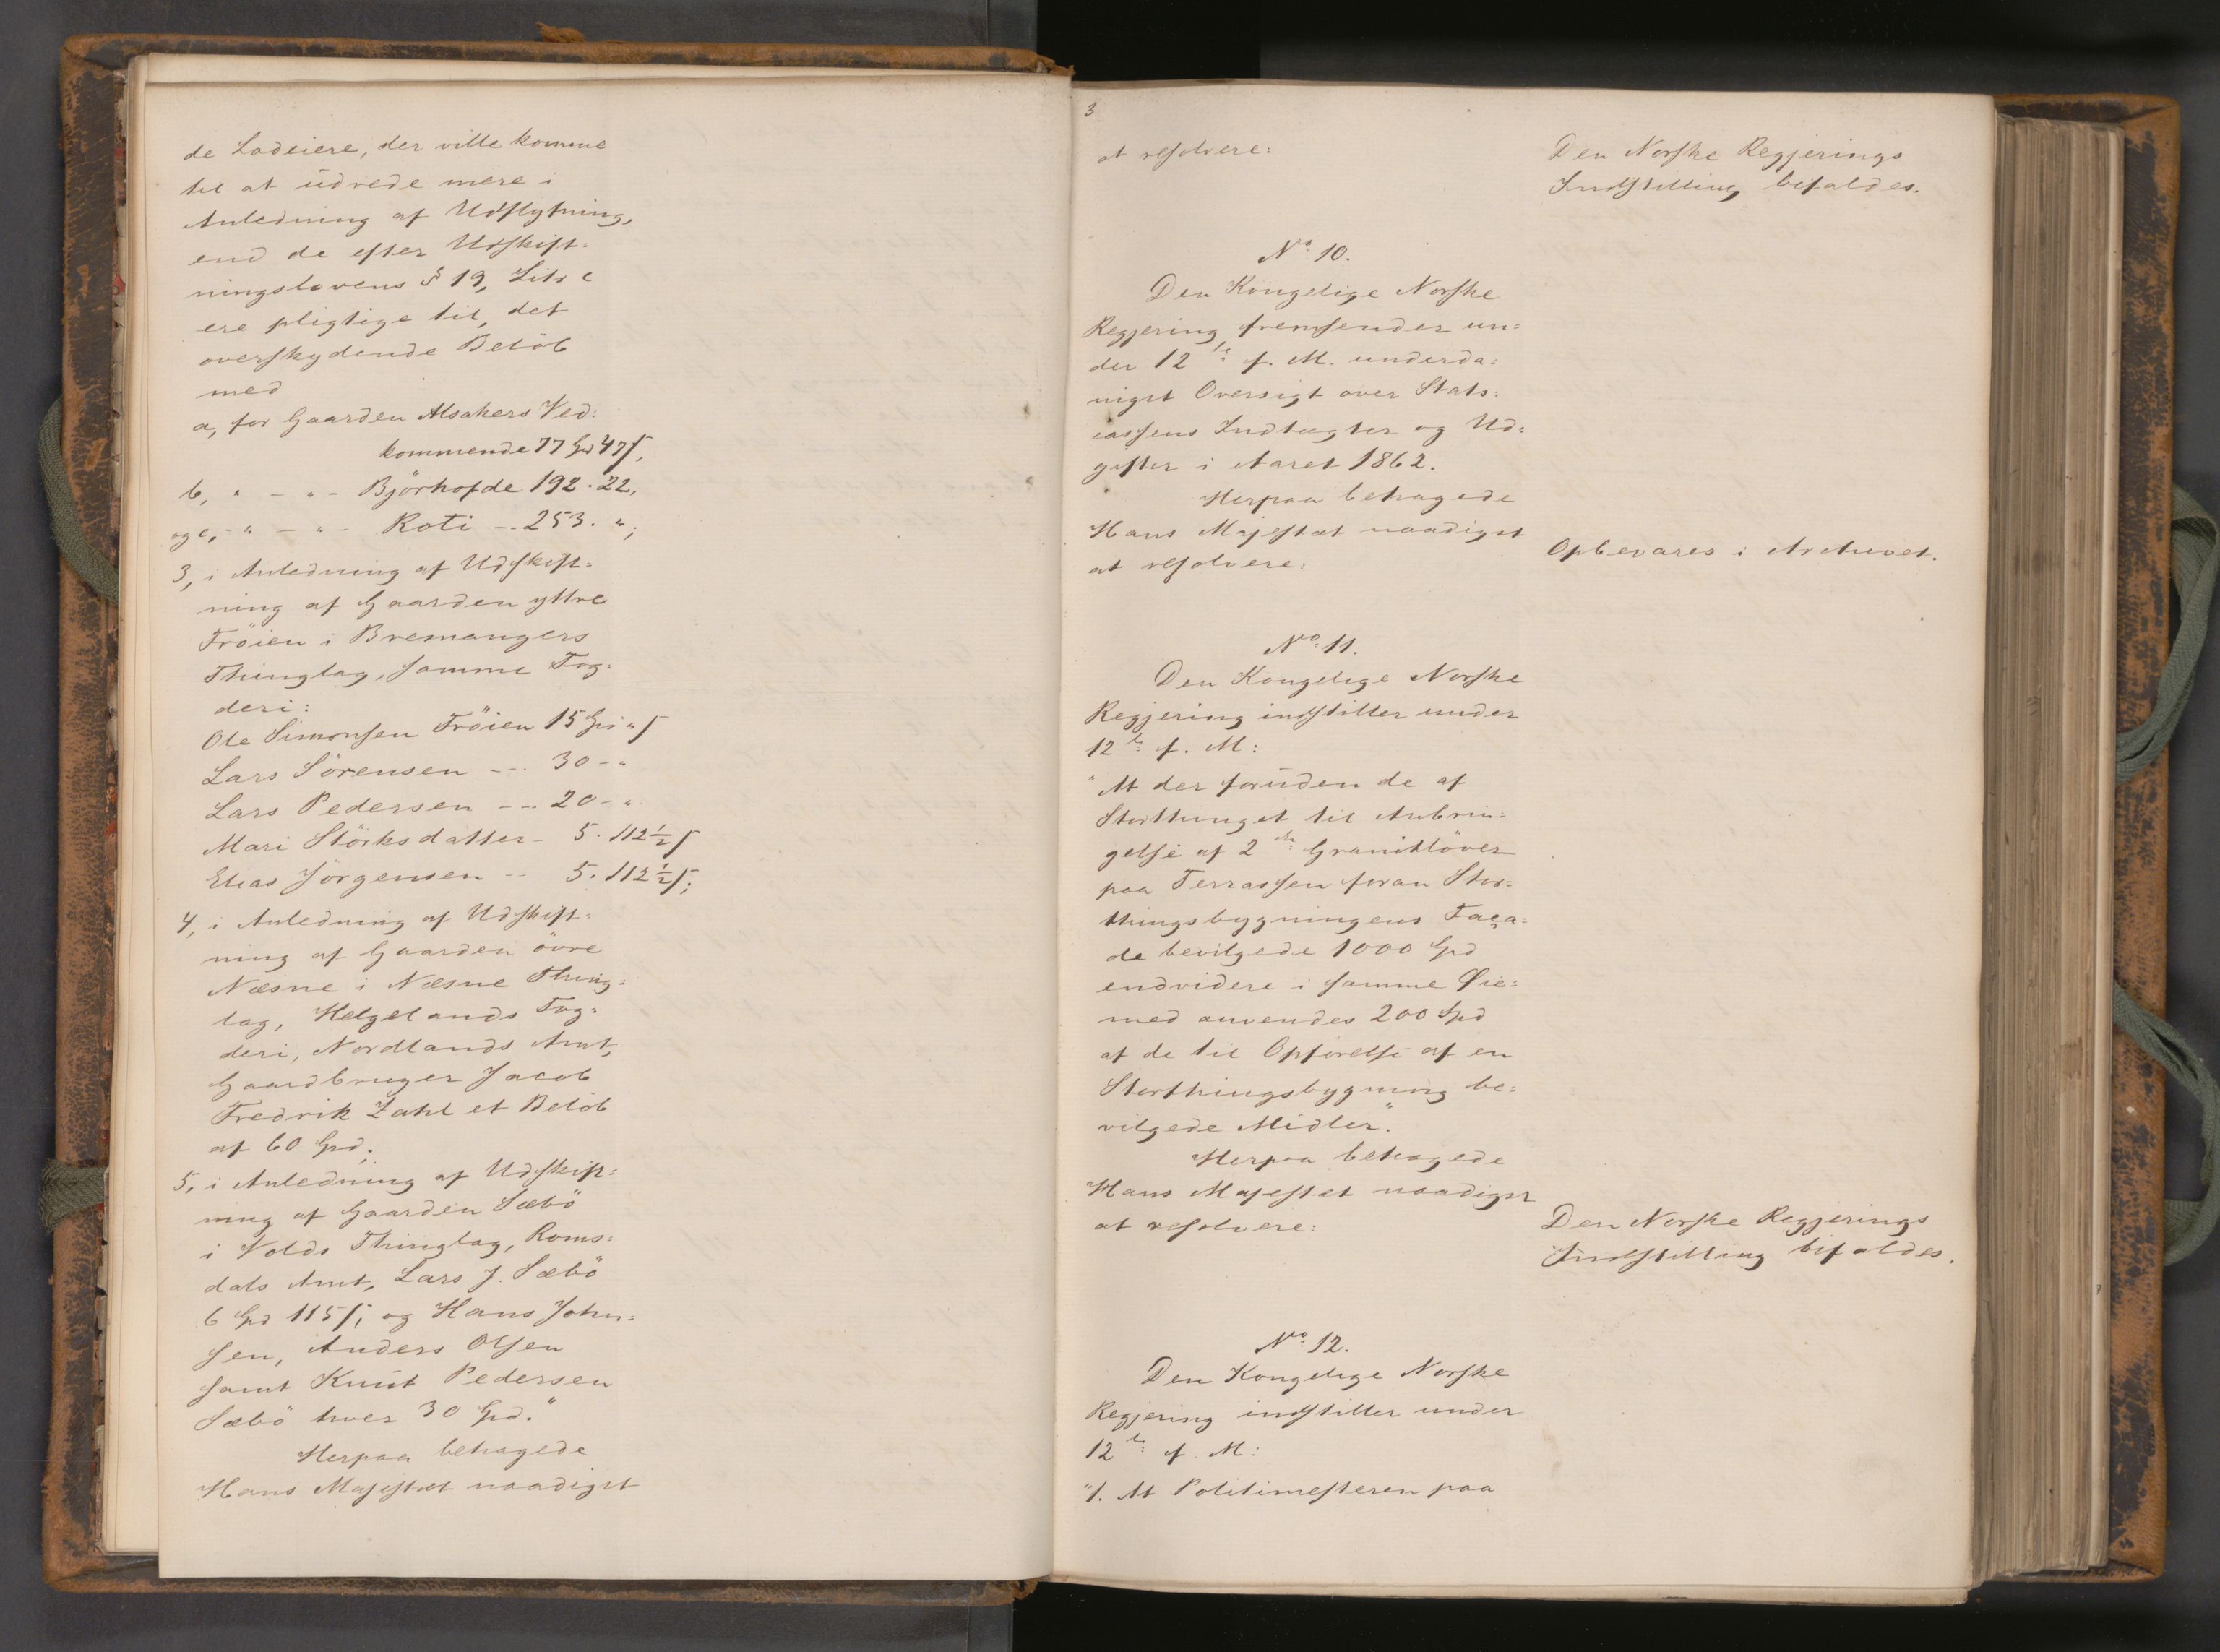 de Lodeiere, der ville komme
til at udrede mere i
Anledning af Udflytning,
end de efter Udskift-
ningslovens § 19, Litr c
ere pligtige til, det
overskydende Belöb
med
a, for Gaarden Alsakers Ved:
kommende 77 Spd 47 s,
b, " - " - Björhofde 192 . 22,
og c, - " - " - Roti - . 253 . ",;
3, i Anledning af Udskift-
ning af Gaarden yttre
Fröien i Bremangers
Thinglag, samme Fog-
deri:
Ole Simonsen Fröien 15 Spd " s
Lars Sörensen - . . 30 - "
Lars Pedersen - . . 20 - "
Mari Störksdatter - 5 . 112½ s
Elias Jörgensen - - 5 . 112½ s;
4, i Anledning af Udskift-
ning af Gaarden övre
Næsne i Næsne Thing-
lag, Helgelands Fog-
deri, Nordlands Amt,
Gaardbruger Jacob
Fredrik Zahl et Belöb
af 60 Spd;
5, i Anledning af Udskift-
ning af Gaarden Sæbö
i Volds Thinglag, Roms-
dals Amt, Lars J. Sæbö
6 Spd 115 s, og Hans John-
sen, Anders Olsen
samt Knut Pedersen
Sæbö hver 30 Spd."
Herpaa behagede
Hans Majestæt naadigst
3
at resolvere:
Den Norske Regjerings
Indstilling bifaldes.
No 10.
Den Kongelige Norske
Regjering fremsender un-
der 12te f. M. underda-
nigst Oversigt over Stats-
cassens Indtægter og Ud-
gifter i Aaret 1862.
Herpaa behagede
Hans Majestæt naadigst
at resolvere:
Opbevares i Archivet.
No 11.
Den Kongelige Norske
Regjering indstiller under
12te f. M:
"At der foruden de af
Storthinget til Anbrin-
gelse af 2de Granitlöver
paa Terrassen foran Stor-
thingsbygningens Faca-
de bevilgede 1000 Spd
endvidere i samme Øie-
med anvendes 200 Spd
af de til Opförelse af en
Storthingsbygning be-
vilgede Midler."
Herpaa behagede
Hans Majestæt naadigst
at resolvere:
Den Norske Regjerings
Indstilling bifaldes.
No 12.
Den Kongelige Norske
Regjering indstiller under
12te f. M:
"1. At Politimesteren paa